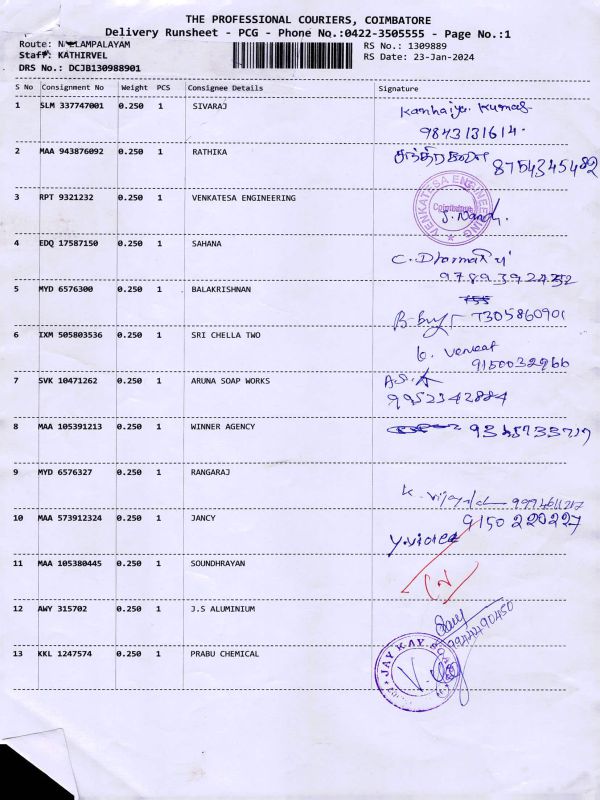 THE PROFESSIONAL COURIERS, COIMBATORE
Delivery Runsheet - PCG - Phone No.:0422-3505555 - Page No.:1
Route: LAMPALAYAM RS No.: 1309889
Staff: KATHIRVEL RS Date: 23-Jan-2024
DRS No.: DCJB130988901
S No Consignment No Weight PCS Consignee Details Signature
1 SLM 337747001 0.250 1 SIVARAJ Kanhaiya Kumar
9843131614.
2 MAA 943876092 0.250 1 RATHIKA 8754345482
3 RPT 9321232 0.250 1 VENKATESA ENGINEERING
VENKATESA ENGINEERING
Coimbatore
J. Nandy.
4 EDQ 17587150 0.250 1 SAHANA C. Dharma
9789392
5 MYD 6576300 0.250 1 BALAKRISHNAN
7305860901
6 IXM 505803536 0.250 1 SRI CHELLA TWO venkat
9150032966
7 SVK 10471262 0.250 1 ARUNA SOAP WORKS
9952342884
8 MAA 105391213 0.250 1 WINNER AGENCY
9 MYD 6576327 0.250 1 RANGARAJ
K.
10 MAA 573912324 0.250 1 JANCY 9150220227
11 MAA 105380445 0.250 1 SOUNDHRAYAN
12 AWY 315702 0.250 1 J.S ALUMINIUM
9944490450
13 KKL 1247574 0.250 1 PRABU CHEMICAL
JAY KAY